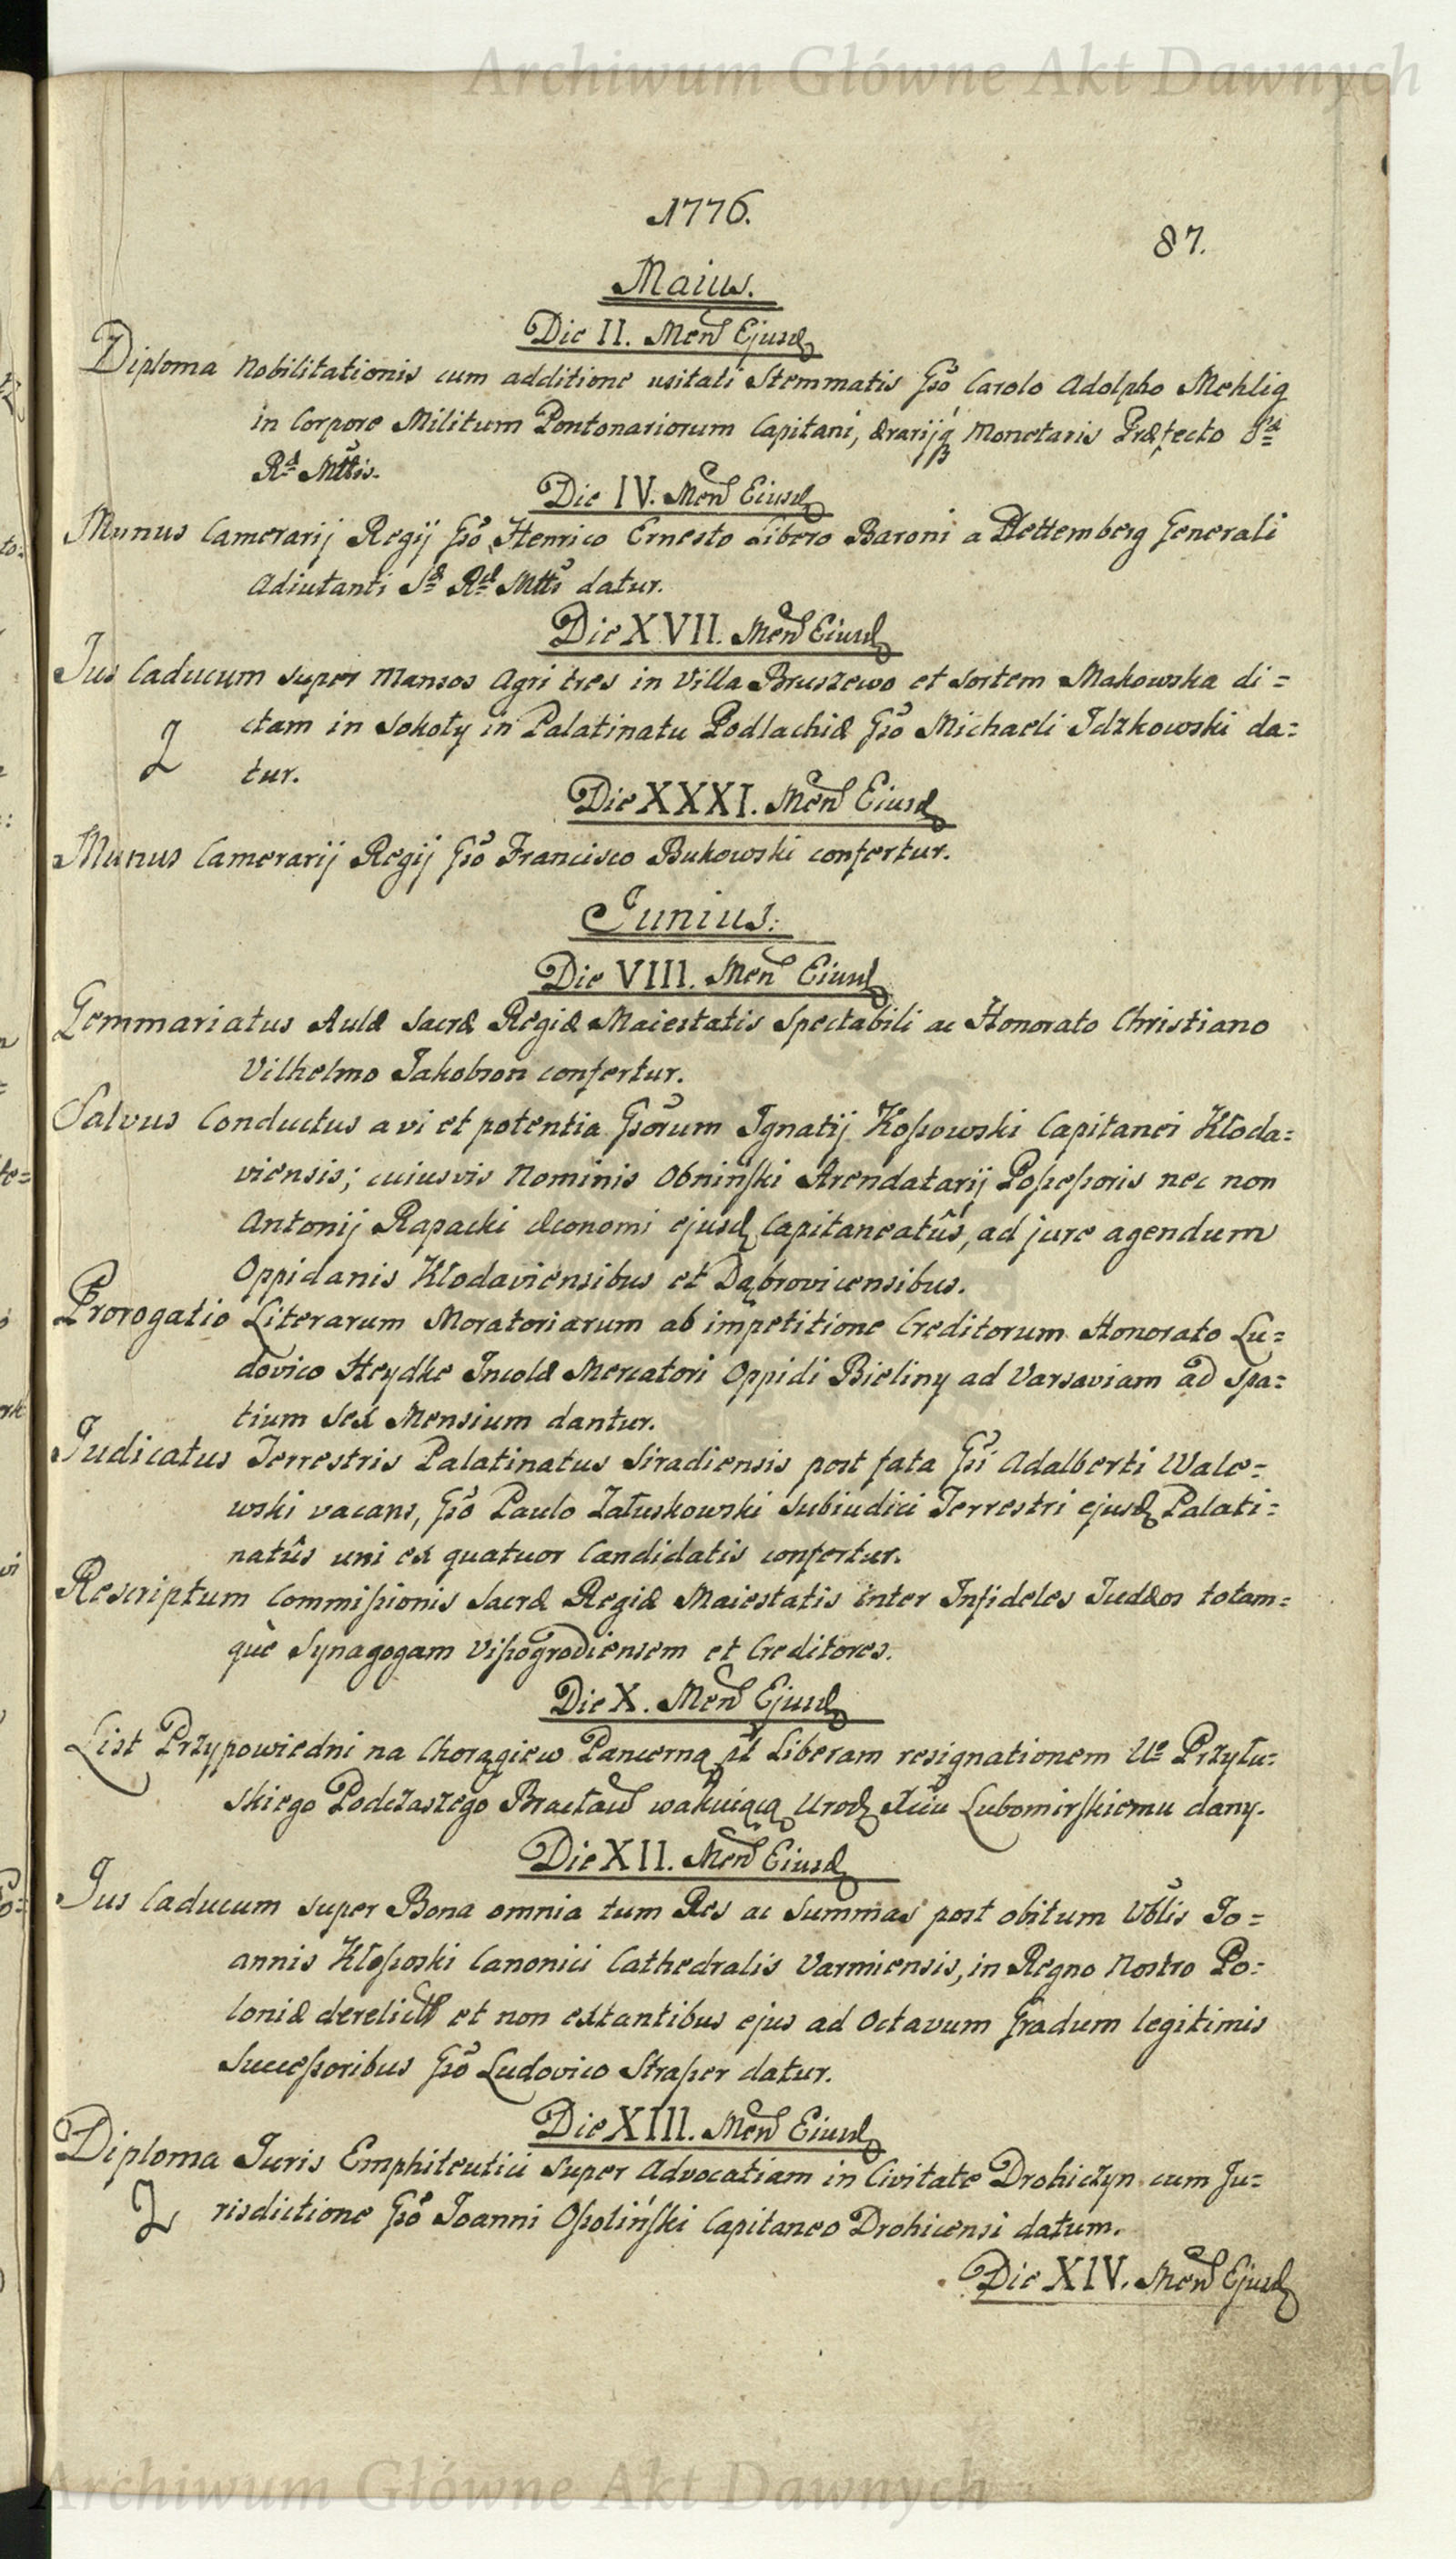 Archiwum Główne Akt Dawnych
1776.
87.
Maius.
Die II. Men Ejusd
Diploma Nobilitationis cum additione usitati Stemmatis Gso Carolo Adolpho Mehlig
in Corpore Militum Pontonariorum Capitani, Ærarijq Monetaris Præfecto Sæ
Ræ Mttis.
Die IV. Men Eiusd
Munus Camerarij Regij Gso Henrico Ernesto Libero Baroni a Plettemberg Generali
Adiutanti Sæ Ræ Mttis datur.
Die XVII. Men Eiusd
Jus Caducum super Mansos Agri tres in Villa Bruszewo et Sortem Makowska di=
ctam in Sokoły in Palatinatu Podlachiæ Gso Michaeli Idzkowski da=
tur.
Die XXXI. Men Eiusd
Munus Camerarij Regij Gso Francisco Bukowski confertur.
Junius.
Die VIII. Men Eiusd
Gemmariatus Aulæ Sacræ Regiæ Maiestatis Spectabili ac Honorato Christiano
Vilhelmo Jakobson confertur.
Salvus Conductus a vi et potentia Gsorum Ignatij Kossowski Capitanei Kłoda=
viensis; cuiusvis Nominis Obniński Arendatarij Possessoris nec non
Antonij Rapacki Œconomi ejusd Capitaneatûs, ad jure agendum
Oppidanis Kłodaviensibus et Dąbrovicensibus.
Prorogatio Literarum Moratoriarum ab impetitione Creditorum Honorato Lu=
dovico Heydke Incolæ Mercatori Oppidi Bieliny ad Varsaviam ad Spa=
tium Sex Mensium dantur.
Judicatus Terrestris Palatinatus Siradiensis post fata Gsi Adalberti Wale=
wski vacans, Gso Paulo Załuskowski Subiudici Terrestri ejusd Palati=
natûs uni ex quatuor Candidatis confertur.
Rescriptum Commissionis Sacræ Regiæ Maiestatis inter Infideles Judæos totam=
què Synagogam Vissogrodiensem et Creditores.
Die X. Men Ejusd
List Przypowiedni na Chorągiew Pancerną pt Liberam resignationem Uo Przyłu=
skiego Podczaszego Bracław wakuiącą Urodz Xciu Lubomirskiemu dany.
Die XII. Men Eiusd
Jus Caducum super Bona omnia tum Res ac Summas post obitum Vblis Jo=
annis Kłossoski Canonici Cathedralis Varmiensis, in Regno Nostro Po=
loniæ derelicta et non extantibus ejus ad Octavum Gradum legitimis
Successoribus Gso Ludovico Strasser datur.
Die XIII. Men Eiusd
Diploma Juris Emphiteutici super Advocatiam in Civitate Drohiczyn cum Ju=
risdictione Gso Joanni Ossoliński Capitaneo Drohicensi datum.
Die XIV. Men Ejusd
Archiwum Główne Akt Dawnych